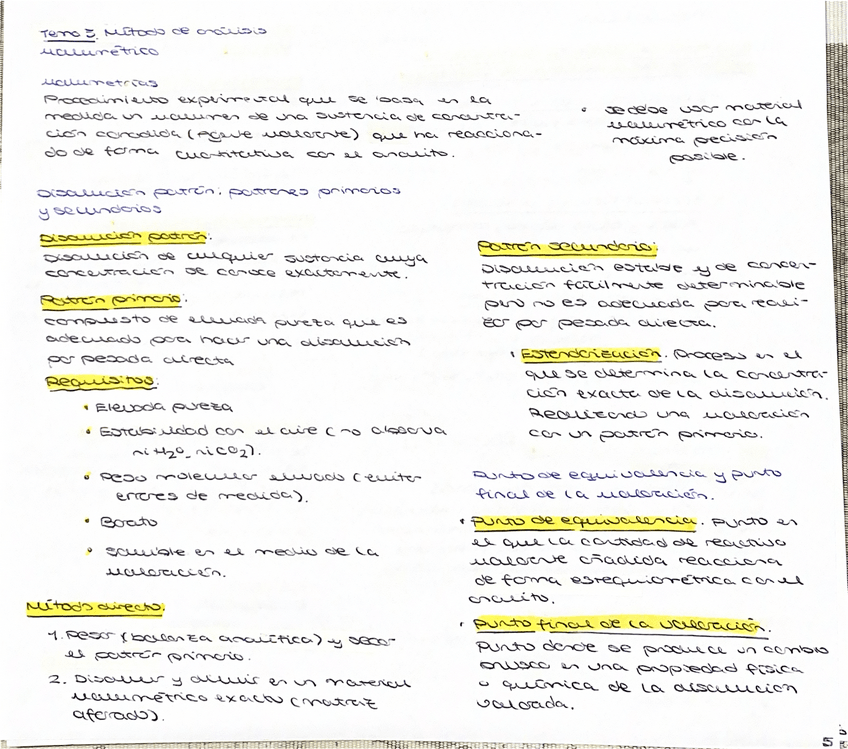 Tema 5. Método de análisis
volumétrico
volumetrías
Procedimiento experimental que se basa en la
medida un volumen de una sustancia de concentra-
ción conocida (agente valorante) que ha reacciona-
do de forma cuantitativa con el analito.
• se debe usar material
volumétrico con la
máxima precisión
posible.
Disolución patrón: patrones primarios
y secundarios
Disolución patrón:
Disolución de culquier sustancia cuya
concentración se conoce exactamente.
Patrón primario:
compuesto de elevada pureza que es
adecuado para hacer una disolución
por pesada directa
Requisitos:
• Elevada pureza
• Estabilidad con el aire (no absorva
ni H2O, ni CO2).
• Peso molecular elevado (evitar
errores de medida).
• Barato
• Soluble en el medio de la
valoración.
Método directo:
1. Pesar (balanza analítica) y secar
el patrón primario.
2. Disolver y diluir en un material
volumétrico exacto (matraz
aforado).
Patrón secundario:
Disolución estable y de concen-
tración fácilmente determinable
pero no es adecuada para reali-
zar por pesada directa.
• Estandarización. Proceso en el
que se determina la concentra-
ción exacta de la disolución.
Realizando una valoración
con un patrón primario.
Punto de equivalencia y punto
final de la valoración.
• Punto de equivalencia. Punto en
el que la cantidad de reactivo
valorante añadida reacciona
de forma estequiométrica con el
analito.
• Punto final de la valoración.
Punto donde se produce un cambio
brusco en una propiedad física
o química de la disolución
valorada.
5